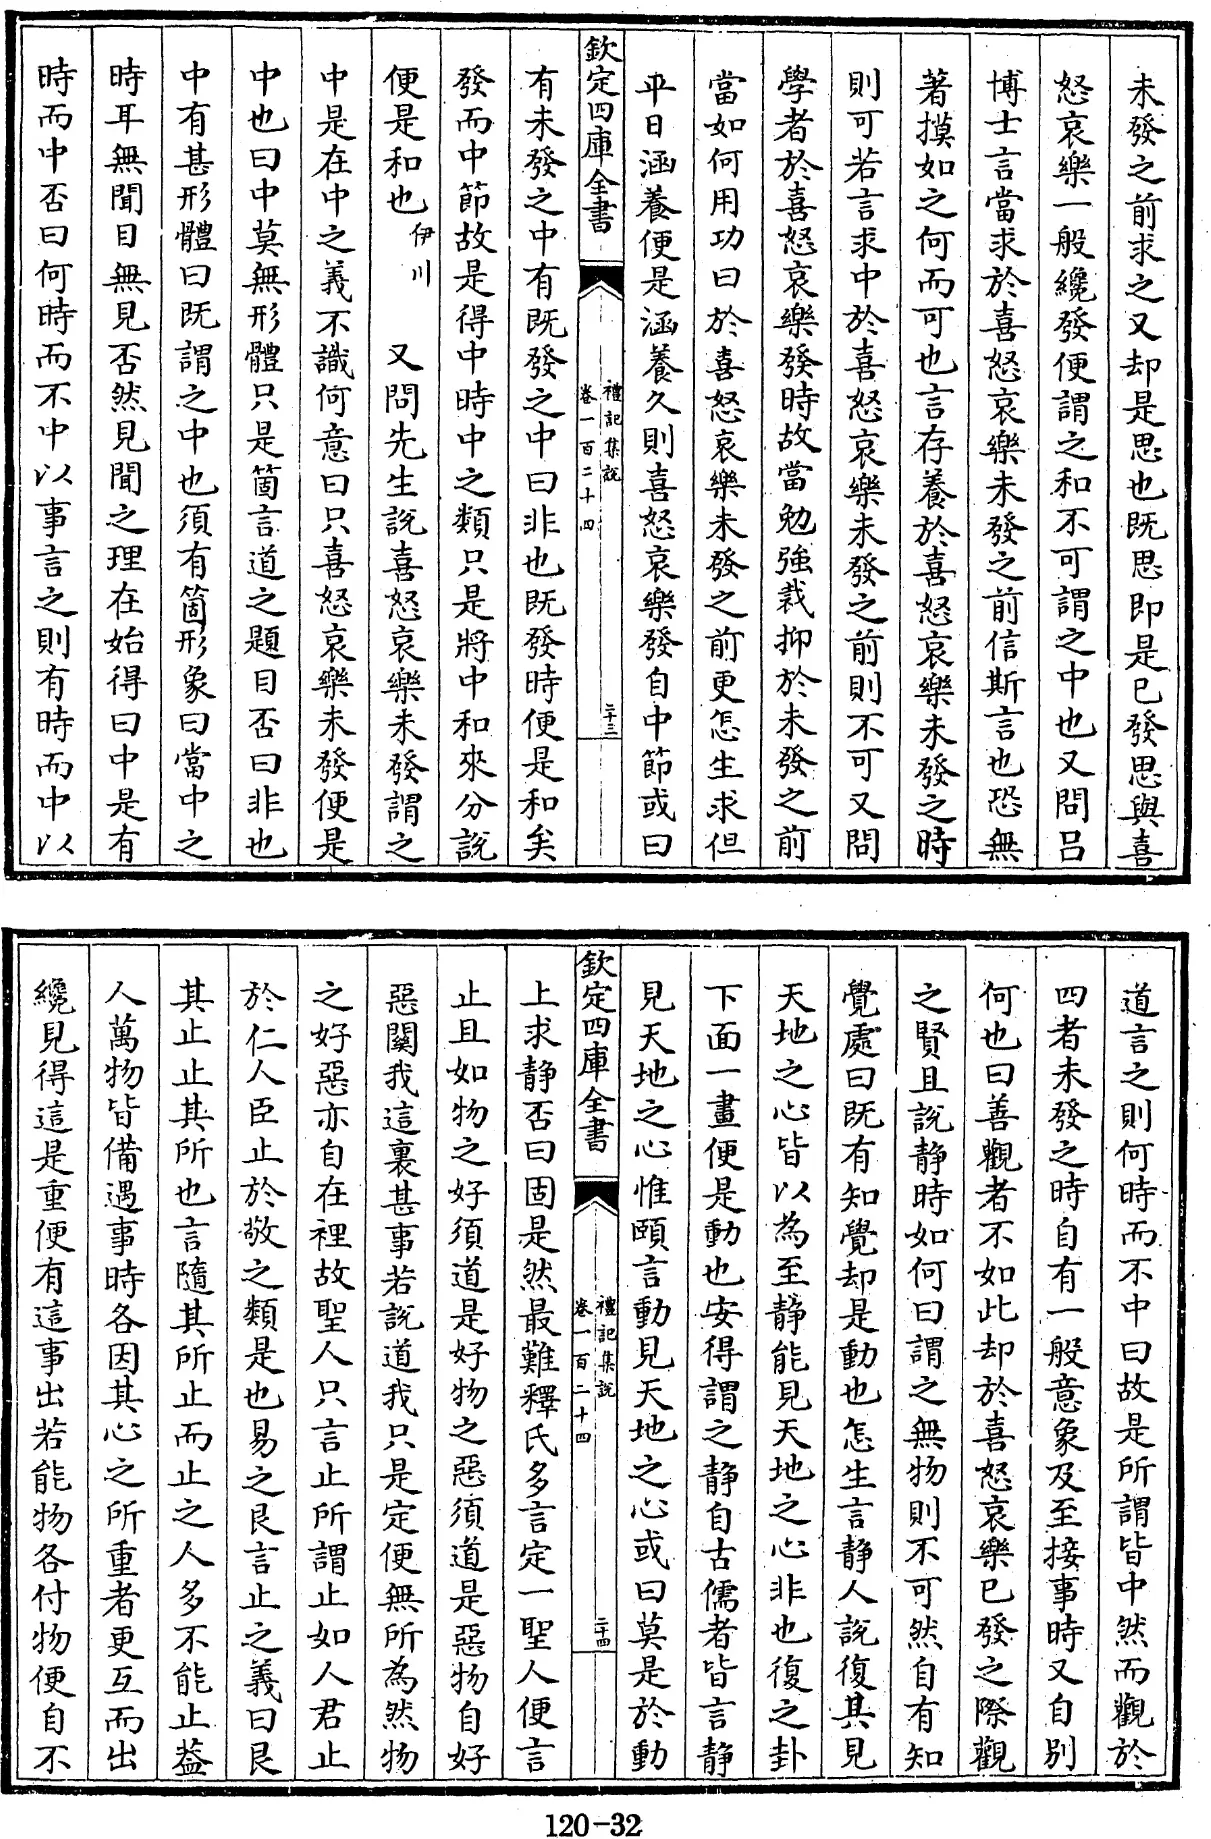 未發之前求之又却是思也既思即是已發思與喜
怒哀樂一般纔發便謂之和不可謂之中也又問吕
博士言當求於喜怒哀樂未發之前信斯言也恐無
著摸如之何而可也言存養於喜怒哀樂未發之時
則可若言求中於喜怒哀樂未發之前則不可又問
學者於喜怒哀樂發時故當勉強裁抑於未發之前
當如何用功曰於喜怒哀樂未發之前更怎生求但
平日涵養便是涵養久則喜怒哀樂發自中節或曰
欽定四庫全書
禮記集說
卷一百二十四
二十三
有未發之中有既發之中曰非也既發時便是和矣
發而中節故是得中時中之類只是將中和來分說
便是和也伊川 又問先生說喜怒哀樂未發謂之
中是在中之義不識何意曰只喜怒哀樂未發便是
中也曰中莫無形體只是箇言道之題目否曰非也
中有甚形體曰既謂之中也須有箇形象曰當中之
時耳無聞目無見否然見聞之理在始得曰中是有
時而中否曰何時而不中以事言之則有時而中以
道言之則何時而不中曰故是所謂皆中然而觀於
四者未發之時自有一般意象及至接事時又自别
何也曰善觀者不如此却於喜怒哀樂已發之際觀
之賢且說静時如何曰謂之無物則不可然自有知
覺處曰既有知覺却是動也怎生言静人說復其見
天地之心皆以為至静能見天地之心非也復之卦
下面一畫便是動也安得謂之静自古儒者皆言静
見天地之心惟頤言動見天地之心或曰莫是於動
欽定四庫全書
禮記集說
卷一百二十四
二十四
上求静否曰固是然最難釋氏多言定一聖人便言
止且如物之好須道是好物之惡須道是惡物自好
惡關我這裏甚事若說道我只是定便無所為然物
之好惡亦自在裡故聖人只言止所謂止如人君止
於仁人臣止於敬之類是也易之艮言止之義曰艮
其止止其所也言隨其所止而止之人多不能止葢
人萬物皆備遇事時各因其心之所重者更互而出
纔見得這是重便有這事出若能物各付物便自不
120-32